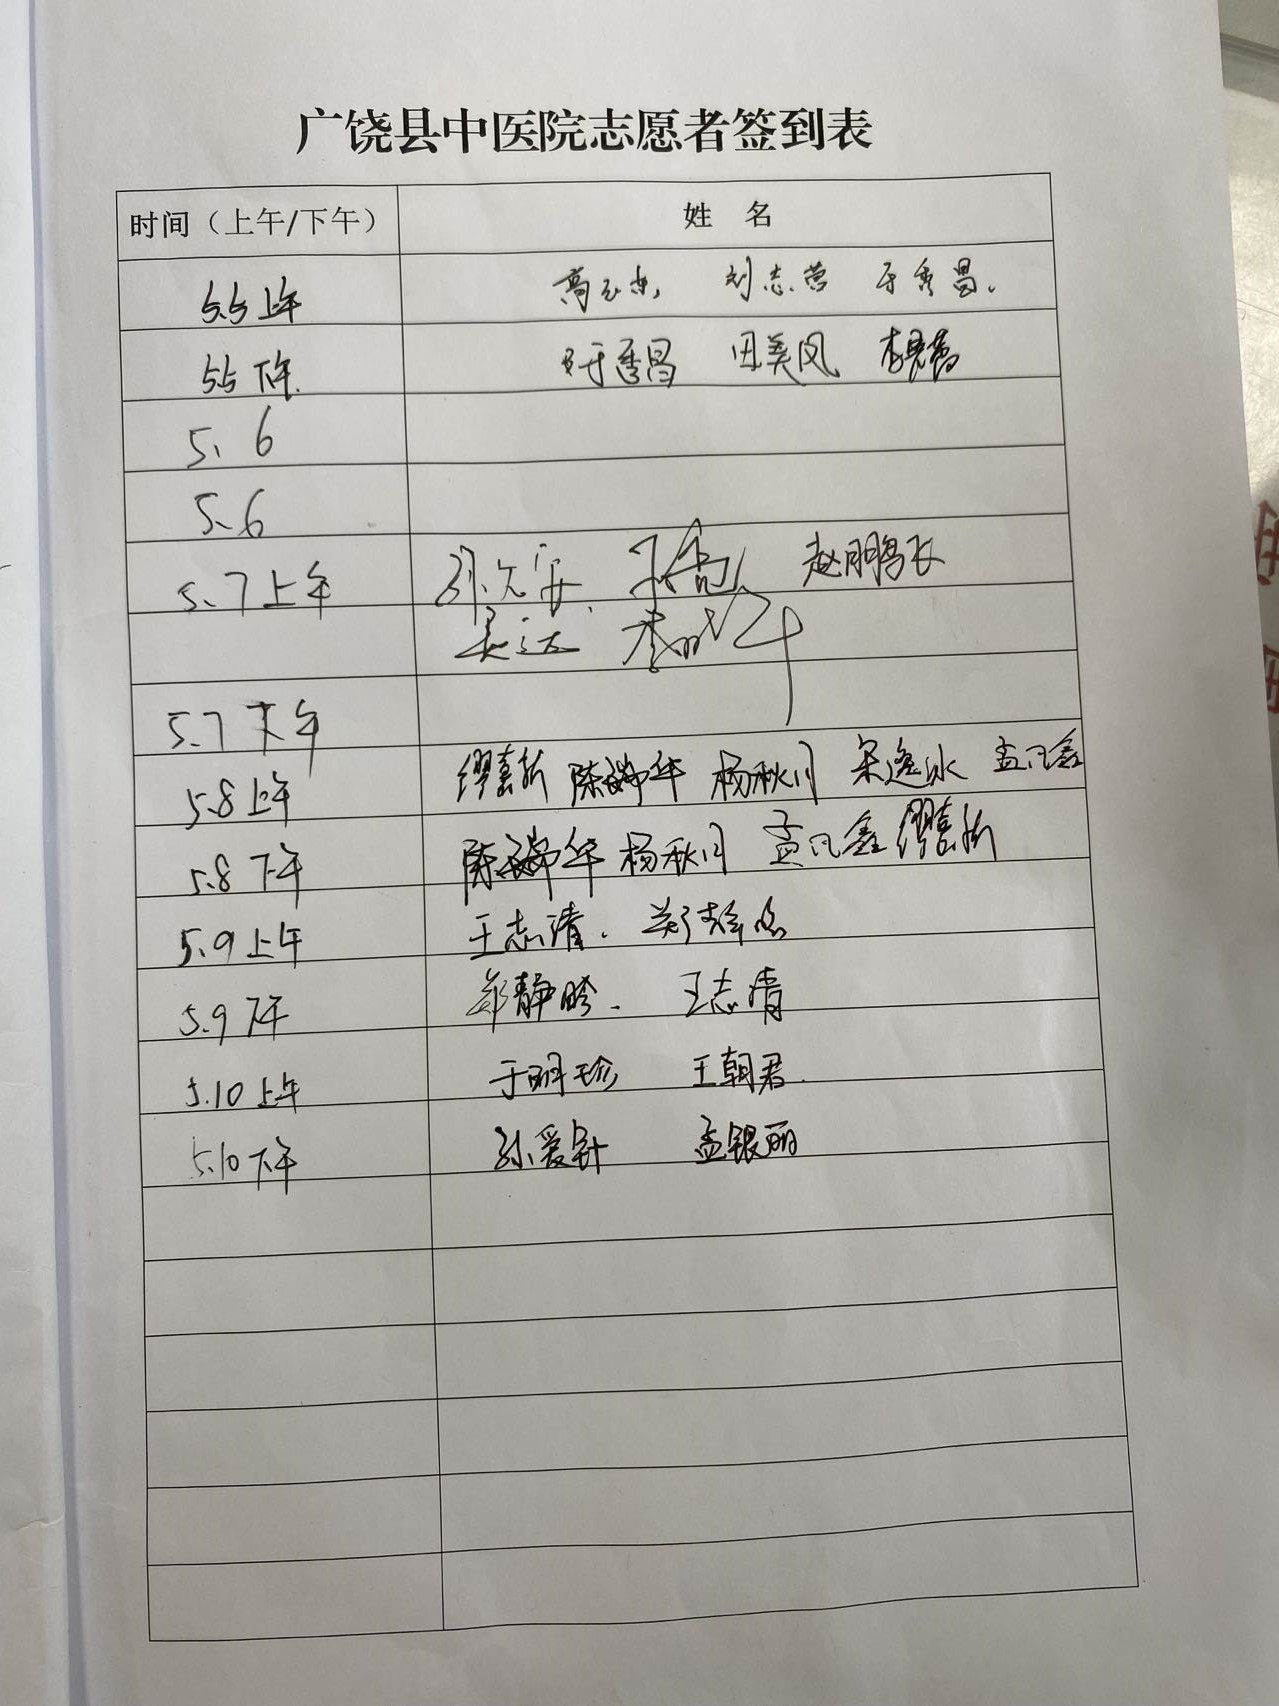 广饶县中医院志愿者签到表
时间（上午/下午） 姓 名
5.5上午 刘志营 于秀昌.
5.5下午. 于秀昌 田美凤
5、6
5、6
5、7上午 赵鹏飞
吴达
5.7下午
5.8上午 缪喜新 陈瑞华 杨秋月 宋逸冰 孟凡鑫
5.8下午 陈瑞华 杨秋月 孟凡鑫 缪喜新
5.9上午 王志清. 郑静
5.9下午 郑静 王志清
5.10上午 于明珍 王朝君.
5.10下午 孙爱针 孟银丽